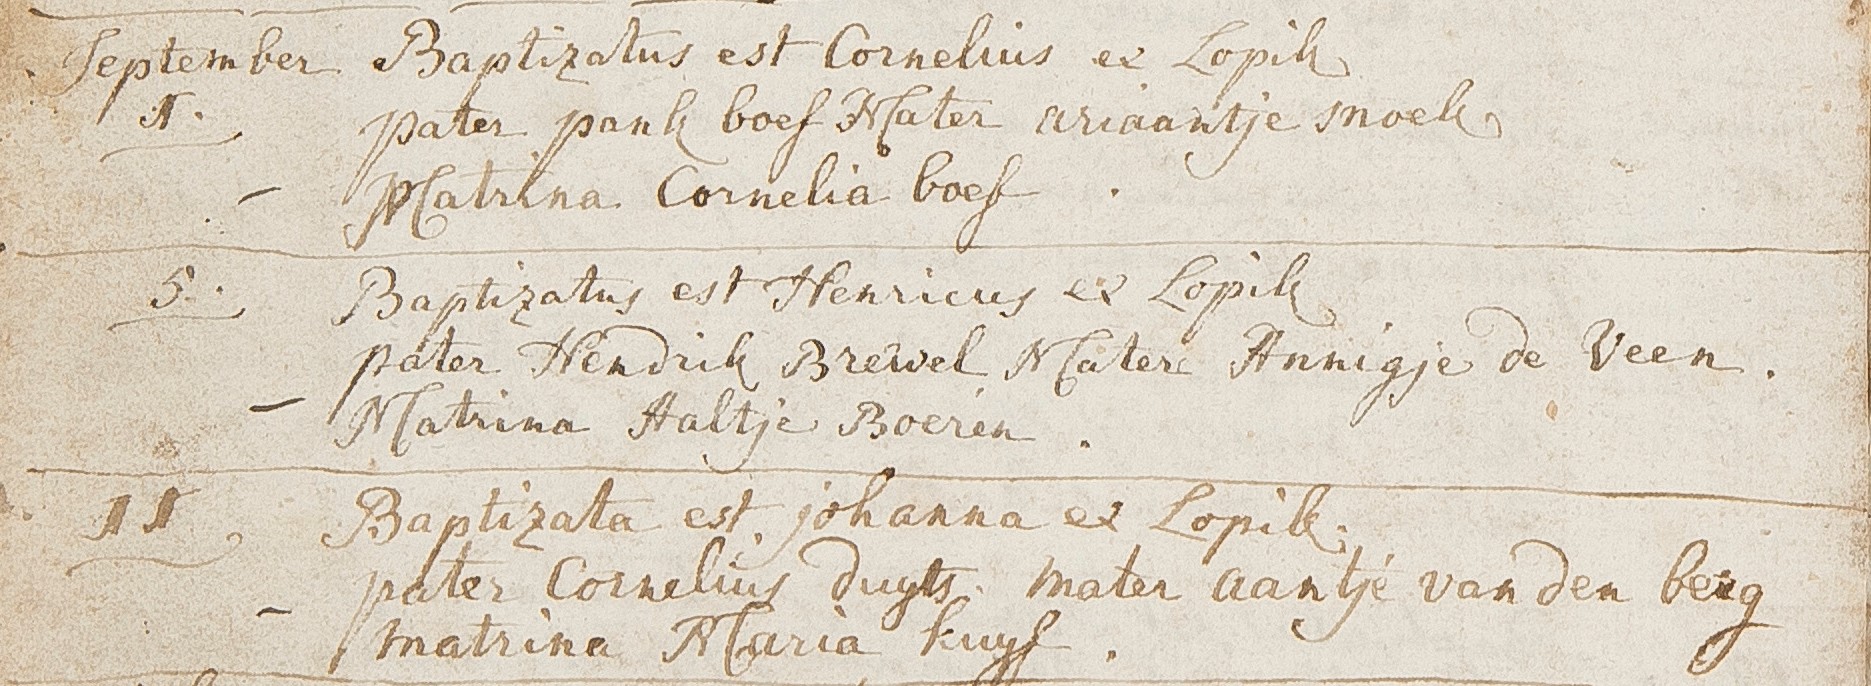 September Baptizatus est Cornelius ex Lopik
1. pater pank boef Mater ariaantje snoek
- Matrina Cornelia boef.
5. Baptizatus est Henricus ex Lopik
pater Hendrik Brewel Mater Annigje de Veen.
- Matrina Aaltje Boeren.
11 Baptizata est johanna ex Lopik.
pater Cornelius duyts. mater aantje van den berg
- matrina Maria kuyf.